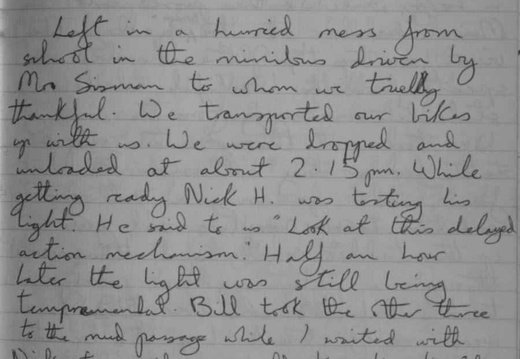 Left in a hurried mess from
school in the minibus driven by
Mrs Sisman to whom we truelly
thankful. We transported our bikes
up with us. We were dropped and
unloaded at about 2.15 pm. While
getting ready Nick H. was testing his
light. He said to us "Look at this delayed
action mechanism." Half an hour
later the light was still being
tempremental. Bill took the other three
to the mud passage while I waited with